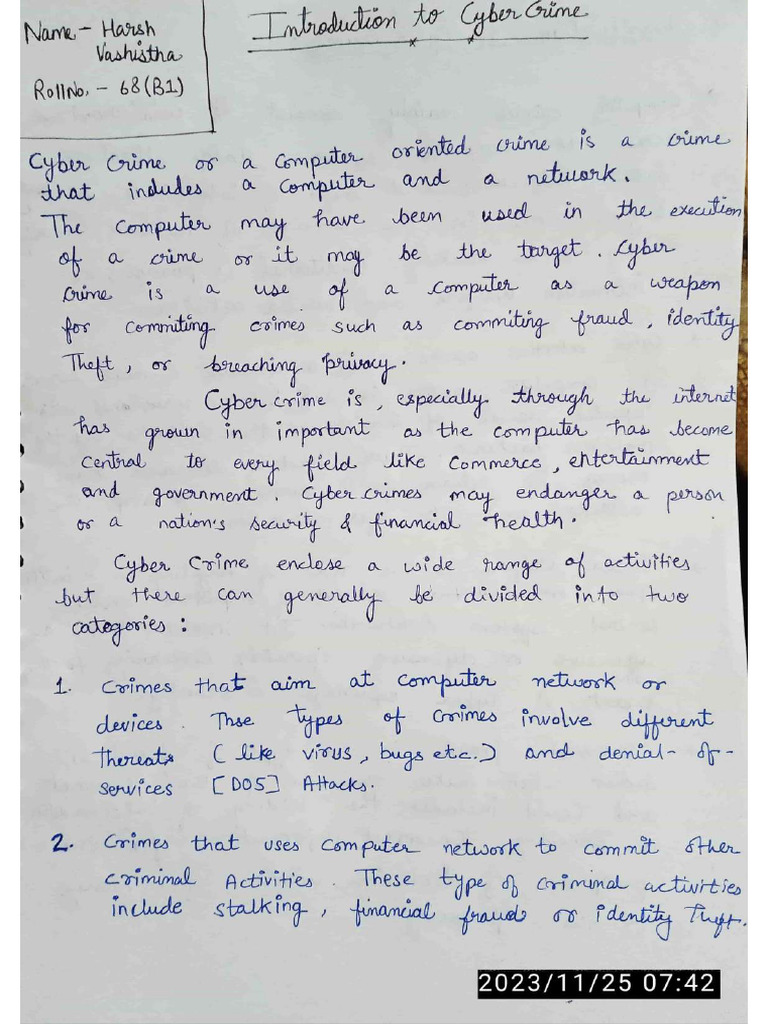 Name - Harsh
Vashistha
Roll No. - 68(B1)
Introduction to Cyber Crime
Cyber Crime or a Computer oriented crime is a crime
that includes a Computer and a network.
The Computer may have been used in the execution
of a crime or it may be the target. Cyber
crime is a use of a computer as a weapon
for commiting crimes such as commiting fraud, identity
Theft, or breaching privacy.
Cyber crime is, especially through the internet
has grown in important as the computer has become
central to every field like Commerce, entertainment
and government. Cyber crimes may endanger a person
or a nation's security & financial health.
Cyber Crime enclose a wide range of activities
but there can generally be divided into two
categories:
1. Crimes that aim at computer network or
devices. Thse types of crimes involve different
thereats (like virus, bugs etc.) and denial-of-
services [DOS] Attacks.
2. Crimes that uses computer network to commit other
criminal Activities. These type of criminal activities
include stalking, financial fraud or identity Theft.
2023/11/25 07:42